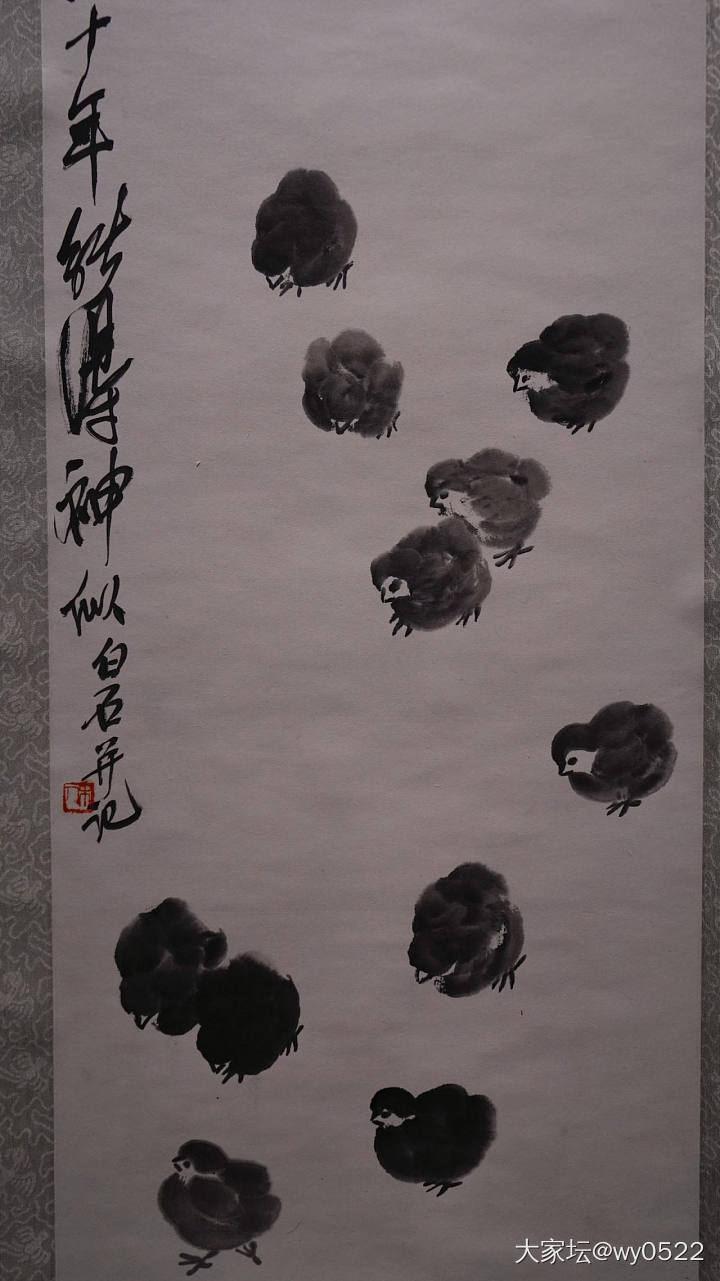 十年能得神似白石并记
大家坛@wy0522